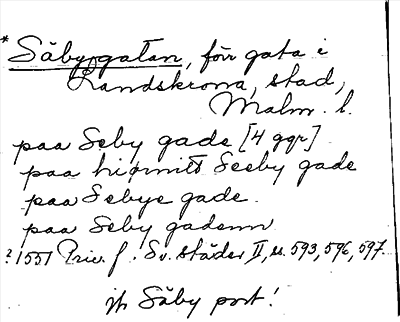 * Säbygatan, förr gata i
Landskrona, stad,
Malm. l.
paa Seby gade [4 ggr]
paa hiørnitt Seeby gade
paa Sebye gade
paa Seby gadenn
? 1551 Priv. f. Sv. städer II, s. 593, 596, 597.
jfr Säby port!